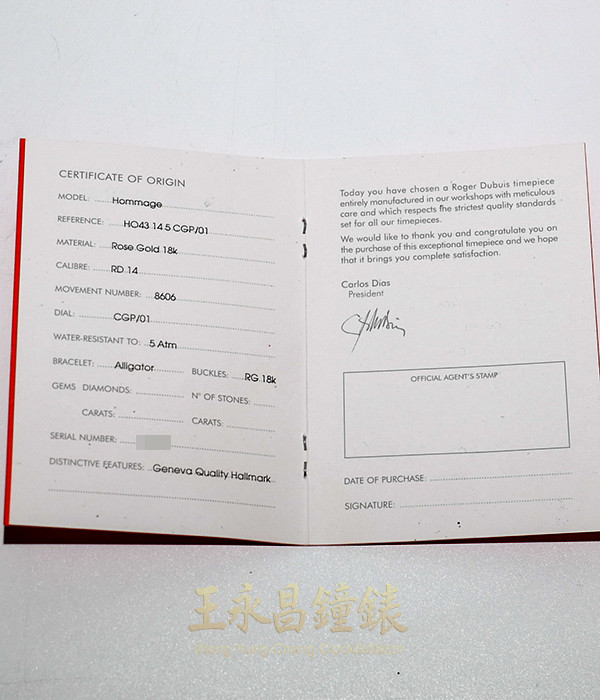 CERTIFICATE OF ORIGIN
MODEL: Hommage
REFERENCE: HO43 14 5 CGP/01
MATERIAL: Rose Gold 18k
CALIBRE: RD 14
MOVEMENT NUMBER: 8606
DIAL: CGP/01
WATER-RESISTANT TO: 5 Atm
BRACELET: Alligator BUCKLES: RG 18k
GEMS DIAMONDS: N° OF STONES:
CARATS: CARATS:
SERIAL NUMBER:
DISTINCTIVE FEATURES: Geneva Quality Hallmark
Today you have chosen a Roger Dubuis timepiece
entirely manufactured in our workshops with meticulous
care and which respects the strictest quality standards
set for all our timepieces.
We would like to thank you and congratulate you on
the purchase of this exceptional timepiece and we hope
that it brings you complete satisfaction.
Carlos Dias
President
OFFICIAL AGENT'S STAMP
DATE OF PURCHASE:
SIGNATURE:
王永昌鐘錶